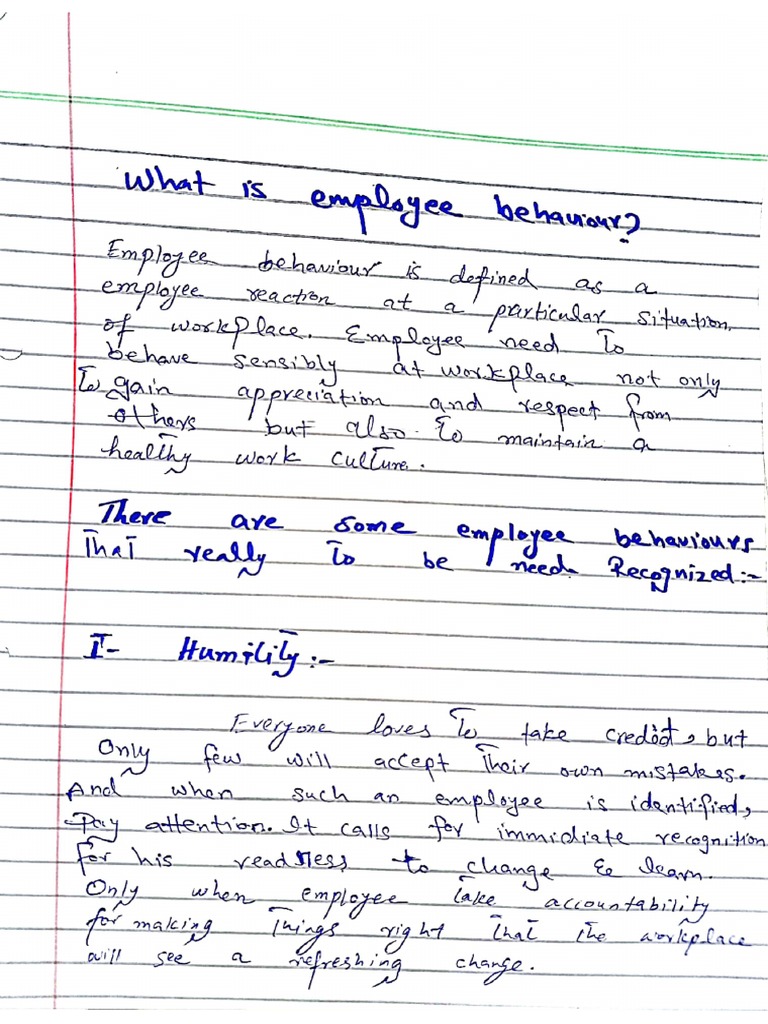 What is employee behaviour?
Employee behaviour is defined as a
employee reaction at a particular situation
of workplace. Employee need to
behave sensibly at workplace not only
to gain appreciation and respect from
others but also to maintain a
healthy work culture.
There are some employee behaviours
that really to be need Recognized:-
I- Humility:-
Everyone loves to take credit, but
Only few will accept their own mistakes.
And when such an employee is identified,
Pay attention. It calls for immidiate recognition
for his readness to change & learn.
Only when employee take accountability
for making things right that the workplace
will see a refreshing change.